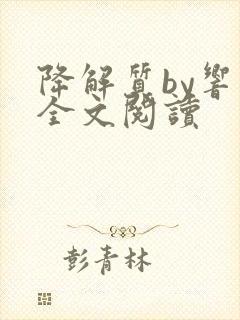 降解質by響
全文閱讀
彭青林